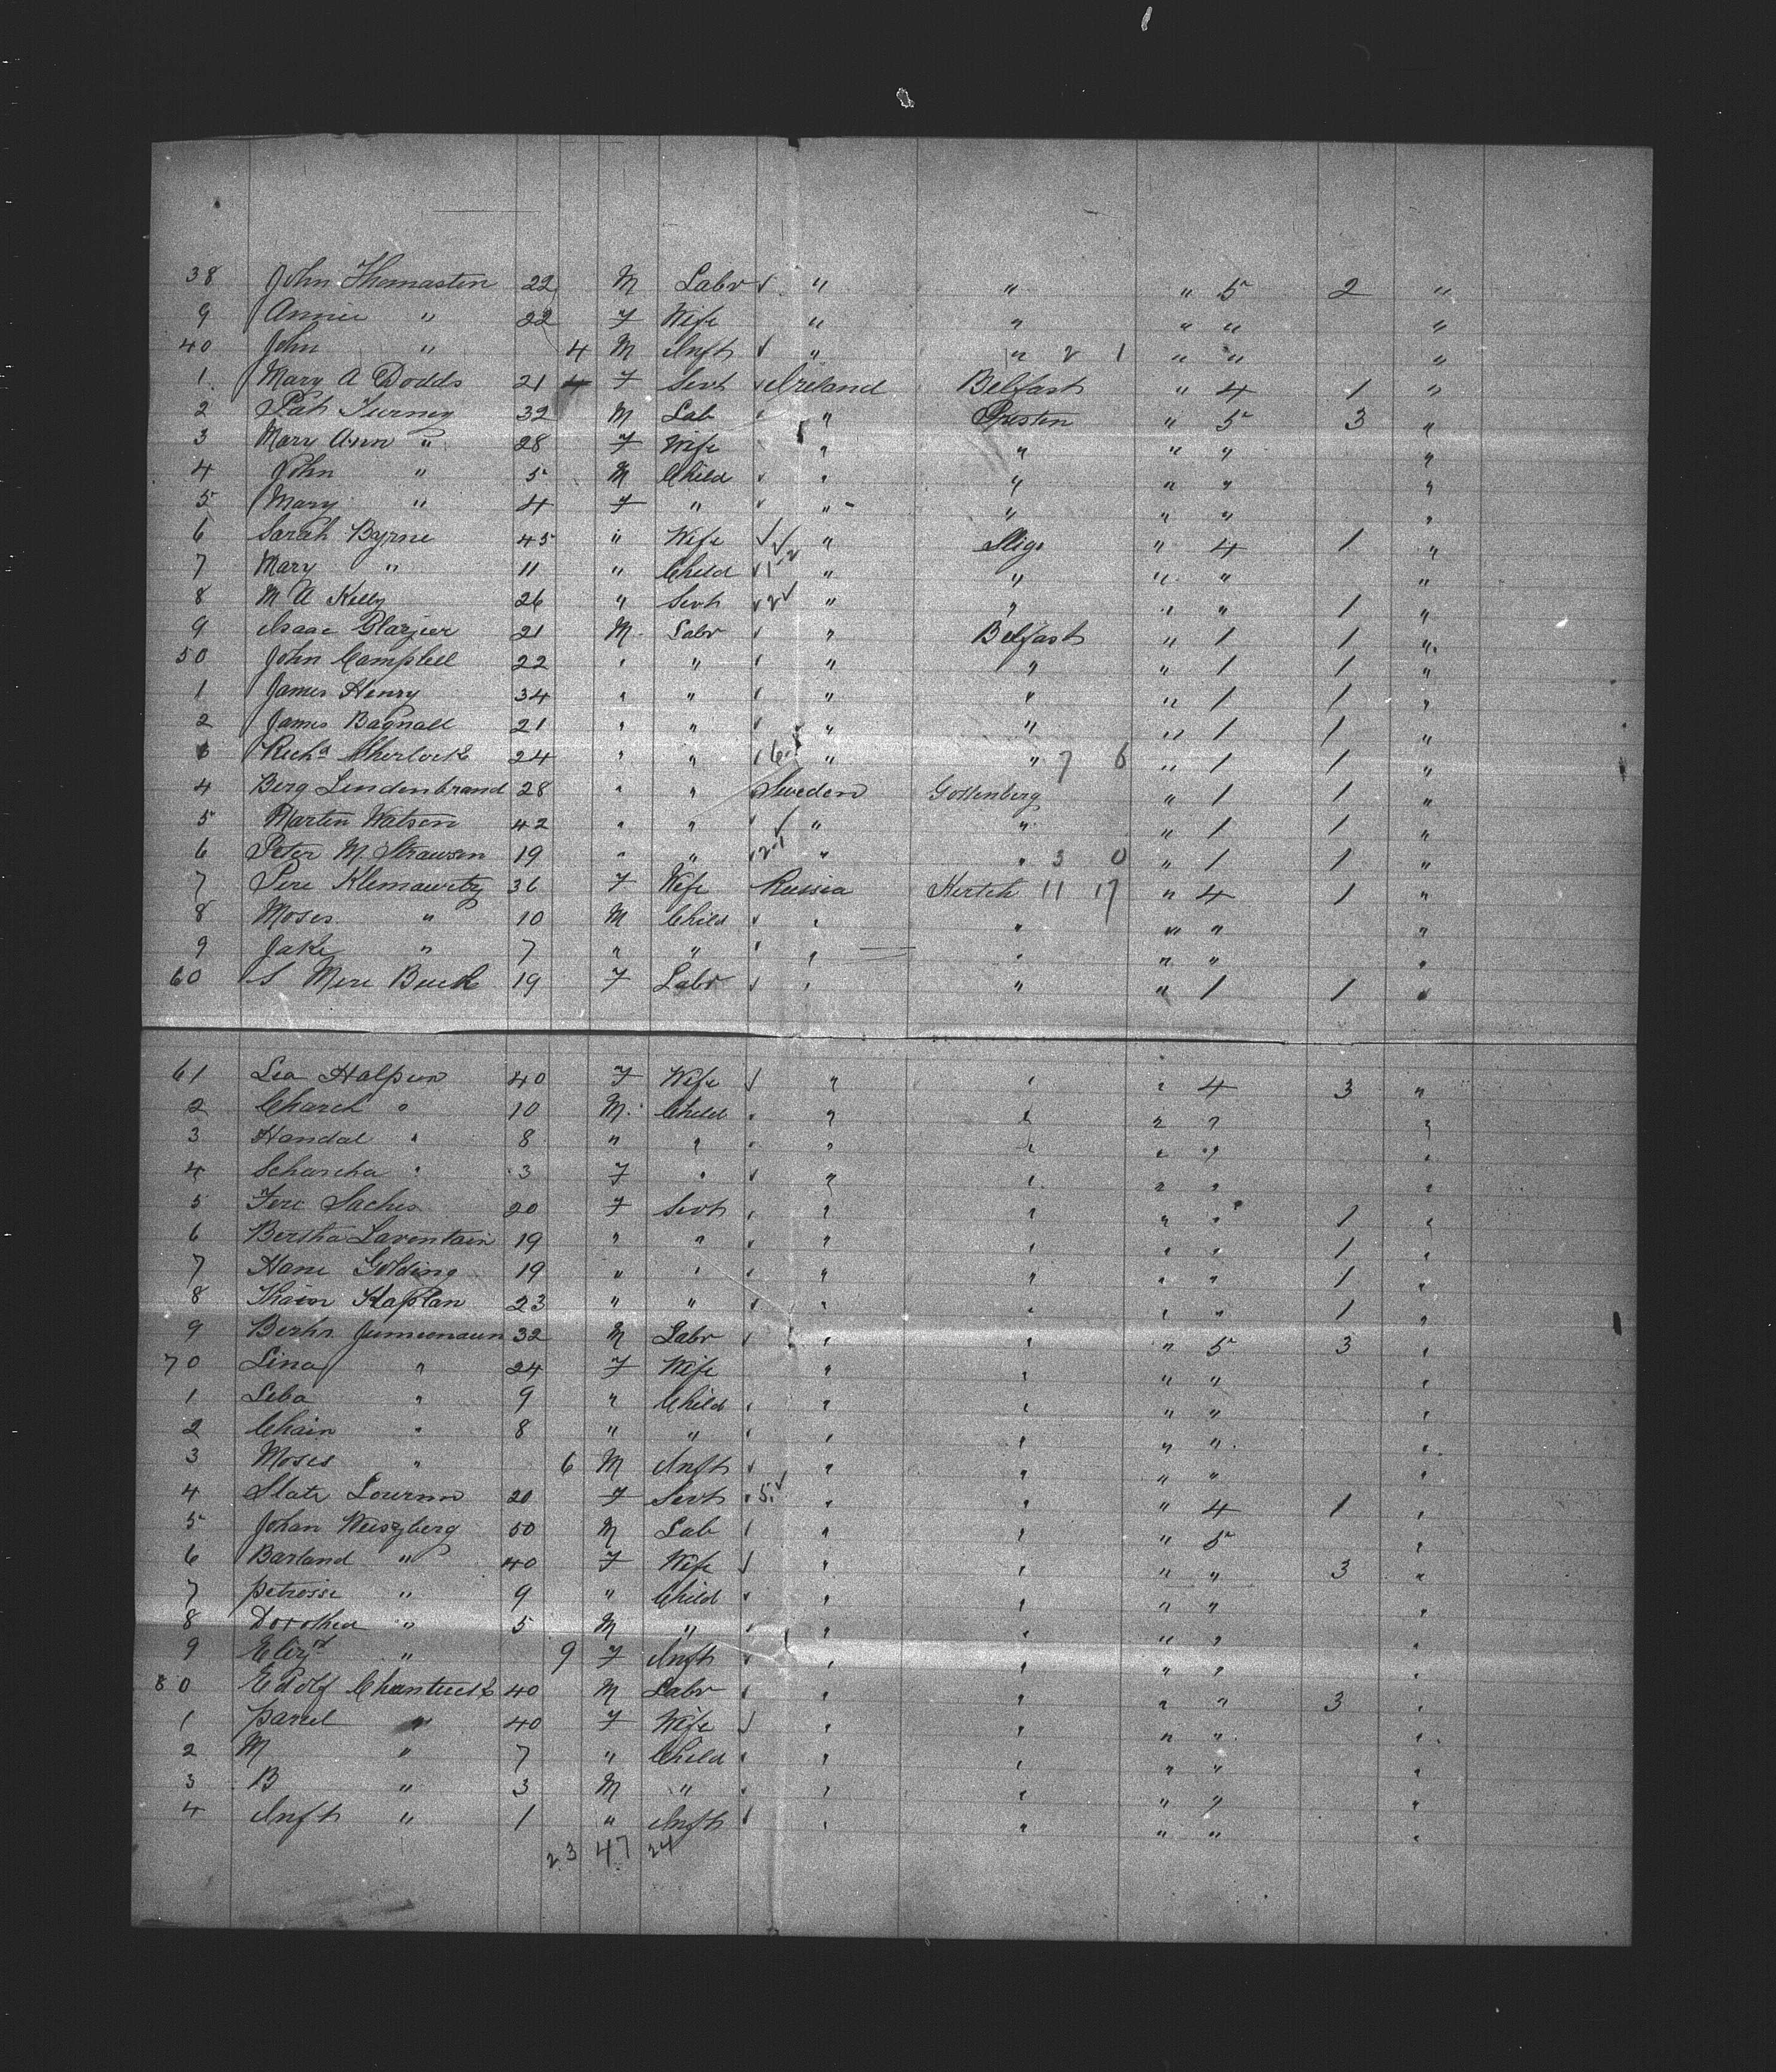 38 John Thomaston 22 M Labr ✓ " " " 5 2 "
9 Annie " 22 F Wife " " " " "
40 John " 4 M Inft ✓ " " 2 1 " " "
1 Mary A Dodds 21 4 F Servt ✓ Ireland Belfast " 4 1 "
2 Pat Turney 32 M Lab " Preston " 5 3 "
3 Mary Ann " 28 F Wife " " " " "
4 John " 5 M Child ✓ " " " " "
5 Mary " 4 F " ✓ " " " " "
6 Sarah Byrne 45 " Wife ✓✓ " Sligo " 4 1 "
7 Mary " 11 " Child ✓ 1 2 " " " " "
8 M A Kelly 26 " Servt ✓ 2 ✓ " " " " 1 "
9 Isaac Glazier 21 M Labr ✓ " Belfast " 1 1 "
50 John Campbell 22 " " ✓ " " " 1 1 "
1 James Henry 34 " " ✓ " " " 1 1 "
2 James Bagnall 21 " " ✓ " " " 1 1 "
3 Richd Sherlock 24 " " ✓ 6 " " 7 6 " 1 1 "
4 Berg Lindenbrand 28 " " Sweden Gottenberg " 1 1 "
5 Martin Watson 42 " " ✓ ✓ " " " 1 1 "
6 Peter M Strawson 19 " " ✓ 2 1 " " 3 0 " 1 1 "
7 Pere Klemawitz 36 F Wife Russia Kertch 11 17 " 4 1 "
8 Moses " 10 M Child ✓ " " " " "
9 Jake " 7 " " ✓ " " " " "
60 S Mere Buck 19 F Labr ✓ " " " 1 1 "
61 Lea Halpern 40 F Wife ✓ " " " 4 3 "
2 Charch " 10 M Child " " " " "
3 Handal " 8 " " " " " " "
4 Scharcha " 3 F " ✓ " " " " "
5 Fere Saches 20 F Servt " " " " 1 "
6 Bertha Laventain 19 " " ✓ " " " " 1 "
7 Hane Golding 19 " " ✓ " " " " 1 "
8 Kaplan 23 " " ✓ " " " " 1 "
9 32 M Labr ✓ " " " 5 3 "
70 Lina " 24 F Wife " " " " "
1 Leba " 9 " Child ✓ " " " " "
2 Chain " 8 " " ✓ " " " " "
3 Moses " 6 M Inft ✓ " " " " "
4 Slate 20 F Servt 5 ✓ " " " 4 1 "
5 Johan Weiszberg 50 M Lab ✓ " " " 5 "
6 Barland " 40 F Wife ✓ " " " " 3 "
7 petrosse " 9 " Child ✓ " " " " "
8 Dorothea " 5 M " ✓ " " " " "
9 Elizth " 9 F Inft ✓ " " " " "
80 Edolf 40 M Labr ✓ " " " " 3 "
1 parel " 40 F Wife ✓ " " " " "
2 M " 7 " Child ✓ " " " " "
3 B " 3 M " ✓ " " " " "
4 Inft " 1 " Inft ✓ " " " " "
23 47 24